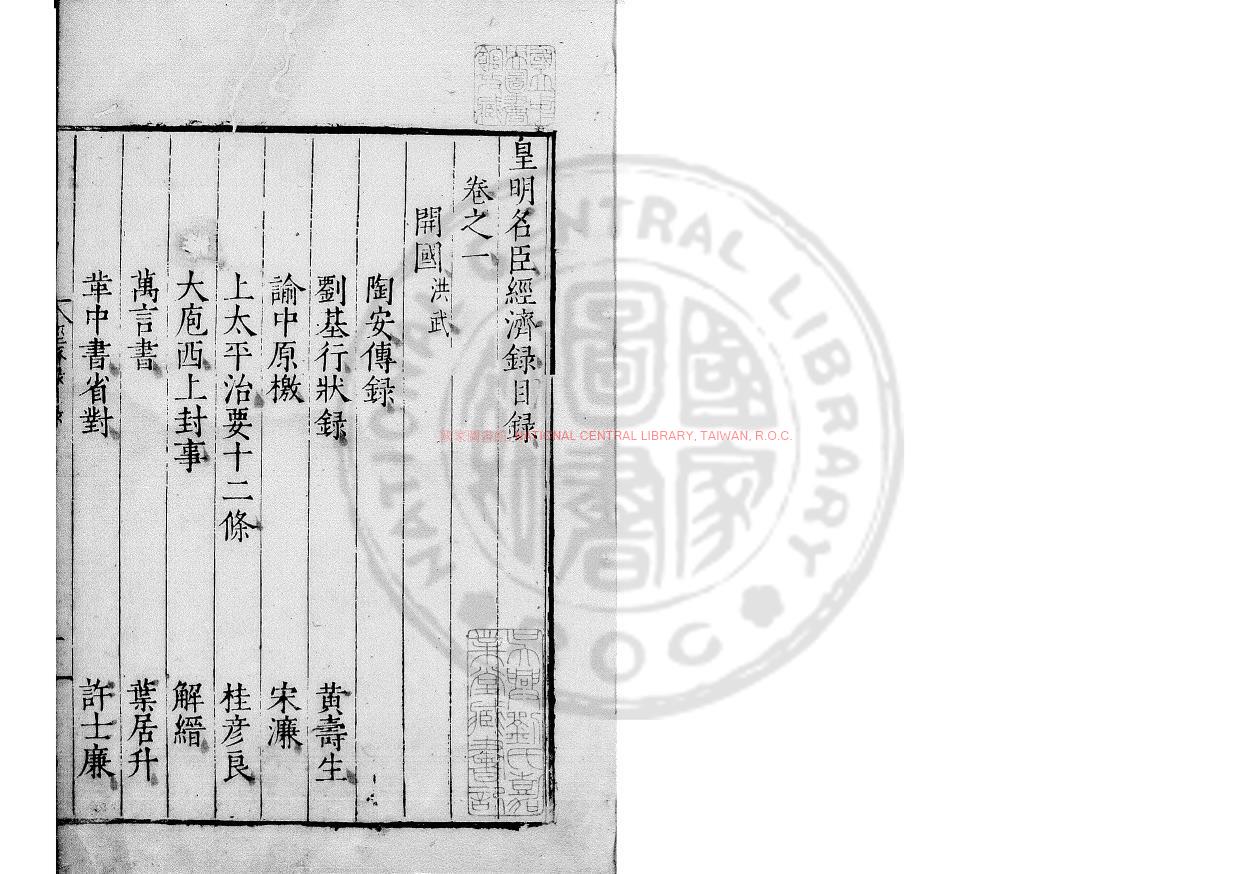 皇明名臣經濟録目録
卷之一
開國 洪武
陶安傳録
劉基行狀録 黄壽生
諭中原檄 宋濂
上太平治要十二條 桂彦良
大庖西上封事 解縉
萬言書 葉居升
革中書省對 許士廉
國立中央圖書館收藏
吳興劉氏嘉業堂藏書記
國家圖書館 NATIONAL CENTRAL LIBRARY, TAIWAN, R.O.C.
NATIONAL CENTRAL LIBRARY
ROC
國家圖書